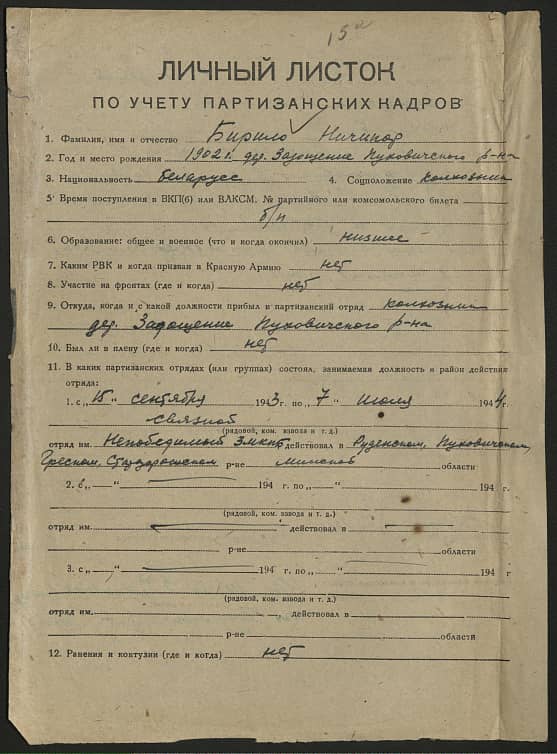 15
ЛИЧНЫЙ ЛИСТОК
ПО УЧЕТУ ПАРТИЗАНСКИХ КАДРОВ
1. Фамилия, имя и отчество Бирило Ничипор
2. Год и место рождения 1902 г. дер. Пуховичского р-на
3. Национальность беларусс 4. Соцположение колхозник
5. Время поступления в ВКП(б) или ВЛКСМ. № партийного или комсомольского билета
б/п
6. Образование: общее и военное (что и когда окончил) низшее
7. Каким РВК и когда призван в Красную Армию нет
8. Участие на фронтах (где и когда) нет
9. Откуда, когда и с какой должности прибыл в партизанский отряд колхозник
дер. Пуховичского р-на
10. Был ли в плену (где и когда) нет
11. В каких партизанских отрядах (или группах) состоял, занимаемая должность и район действия
отряда:
1. с „15" сентября 1943 г. по „7" июля 1944 г.
связной
(рядовой, ком. взвода и т. д.)
отряд им. Непобедимый действовал в Руденском, Пуховичском,
Гресском, Стародорожском р-не Минской области
2. с „ " 194 г. по „ " 194 г.
(рядовой, ком. взвода и т. д.)
отряд им. действовал в
р-не области
3. с „ " 194 г. по „ " 194 г
(рядовой, ком. взвода и т. д.)
отряд им. действовал в
р-не области
12. Ранения и контузии (где и когда) нет